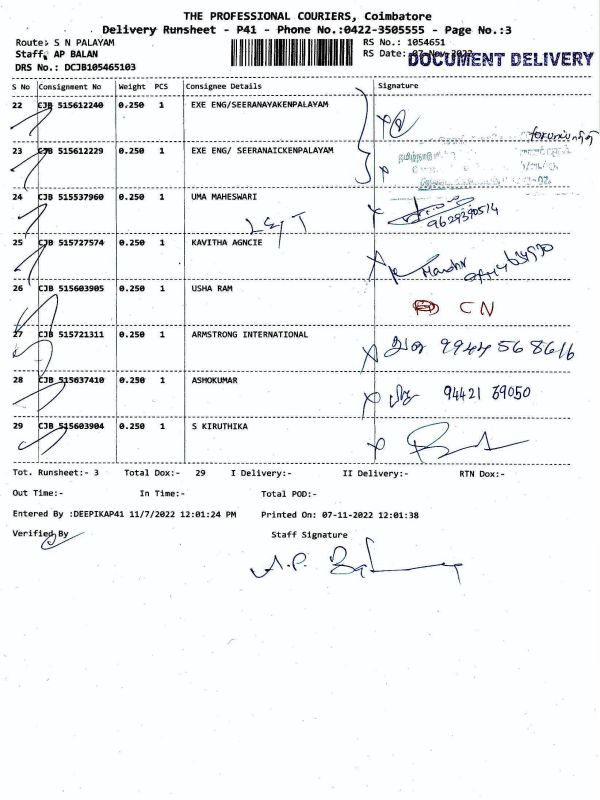 THE PROFESSIONAL COURIERS, Coimbatore
Delivery Runsheet - P41 - Phone No.:0422-3505555 - Page No.:3
Route: S N PALAYAM RS No.: 1054651
Staff: AP BALAN RS Date: 07-Nov-2022 DOCUMENT DELIVERY
DRS No.: DCJB105465103
S No Consignment No Weight PCS Consignee Details Signature
22 CJB 515612240 0.250 1 EXE ENG/SEERANAYAKENPALAYAM
23 CJB 515612229 0.250 1 EXE ENG/ SEERANAICKENPALAYAM
24 CJB 515537960 0.250 1 UMA MAHESWARI
L&T
25 CJB 515727574 0.250 1 KAVITHA AGNCIE
26 CJB 515603905 0.250 1 USHA RAM
CN
27 CJB 515721311 0.250 1 ARMSTRONG INTERNATIONAL
9944568616
28 CJB 515637410 0.250 1 ASHOKUMAR
94421 69050
29 CJB 515603904 0.250 1 S KIRUTHIKA
Tot. Runsheet:- 3 Total Dox:- 29 I Delivery:- II Delivery:- RTN Dox:-
Out Time:- In Time:- Total POD:-
Entered By :DEEPIKAP41 11/7/2022 12:01:24 PM Printed On: 07-11-2022 12:01:38
Verified By Staff Signature
A.P.